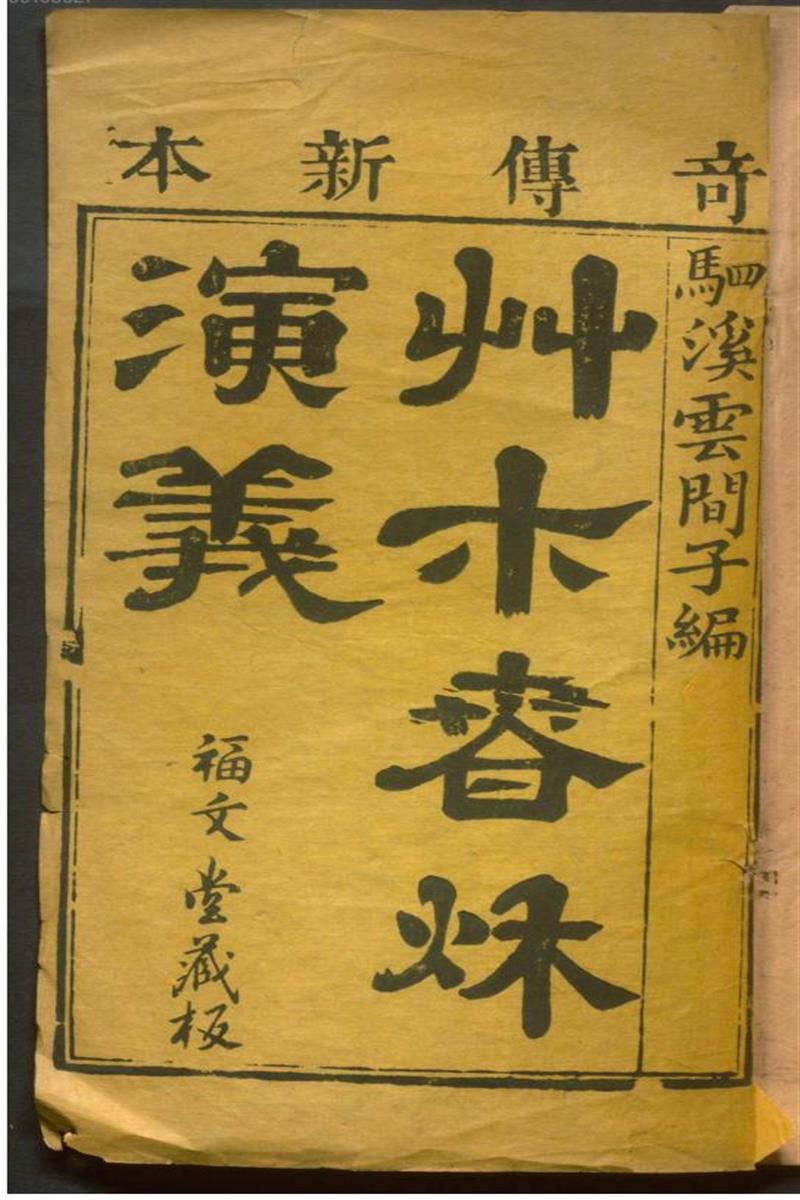 奇傳新本
駟溪雲間子編
艸木春秌
演義
福文堂藏板